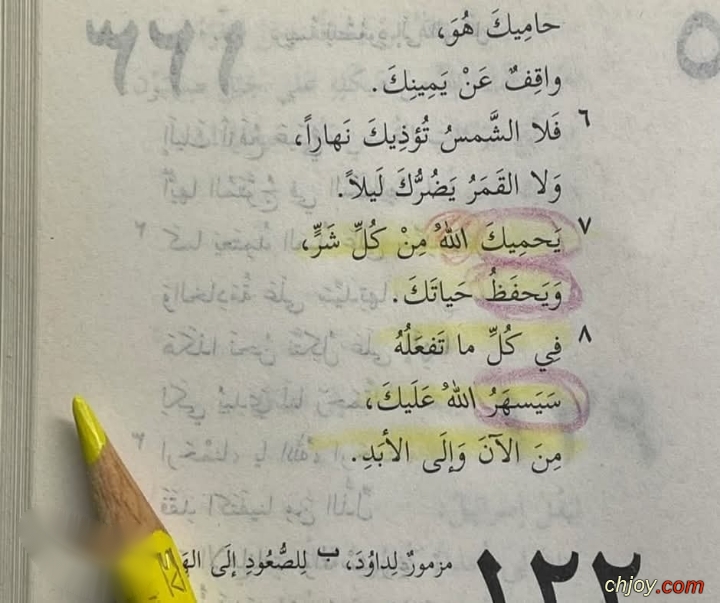 حامِيكَ هُوَ،
واقِفٌ عَنْ يَمِينِكَ.
٦ فَلا الشَّمسُ تُؤذِيكَ نَهاراً،
وَلا القَمَرُ يَضُرُّكَ لَيلاً.
٧ يَحمِيكَ اللهُ مِنْ كُلِّ شَرٍّ،
وَيَحفَظُ حَياتَكَ.
٨ فِي كُلِّ ما تَفعَلُهُ
سَيَسهَرُ اللهُ عَلَيكَ،
مِنَ الآنَ وَإلَى الأبَدِ.
١٢٢
مزمورٌ لِداوُدَ، ب لِلصُّعُودِ إلَى
chjoy.com